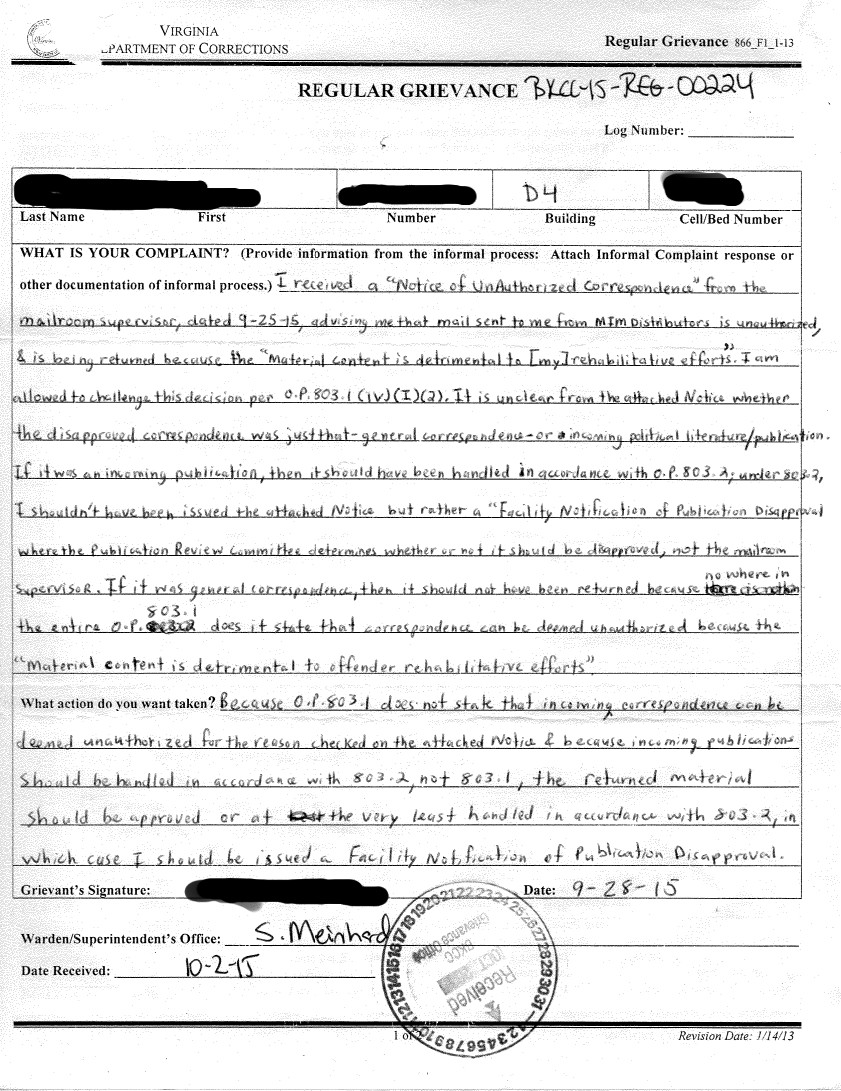 VIRGINIA
PARTMENT OF CORRECTIONS
Regular Grievance 866_F1_1-13
REGULAR GRIEVANCE BKCC-15-REG-00224
Log Number:
D4
Last Name First Number Building Cell/Bed Number
WHAT IS YOUR COMPLAINT? (Provide information from the informal process: Attach Informal Complaint response or
other documentation of informal process.) I received a "Notice of UnAuthorized Correspondence" from the
mailroom supervisor, dated 9-25-15, advising me that mail sent to me from MIM Distributors is unauthorized,
& is being returned because the "Material content is detrimental to [my] rehabilitative efforts". I am
allowed to challenge this decision per O.P. 803.1 (IV)(I)(2). It is unclear from the attached Notice whether
the disapproved correspondence was just that - general correspondence - or incoming political literature/publication.
If it was an incoming publication, then it should have been handled in accordance with O.P. 803.2; under 803.2,
I shouldn't have been issued the attached Notice but rather a "Facility Notification of Publication Disapproval
where the Publication Review Committee determines whether or not it should be disapproved, not the mailroom
supervisor. If it was general correspondence, then it should not have been returned because no where in
the entire O.P. 803.1 does it state that correspondence can be deemed unauthorized because the
"Material content is detrimental to offender rehabilitative efforts".
What action do you want taken? Because O.P. 803.1 does not state that incoming correspondence can be
deemed unauthorized for the reason checked on the attached Notice & because incoming publications
should be handled in accordance with 803.2, not 803.1, the returned material
should be approved or at the very least handled in accordance with 803.2, in
which case I should be issued a Facility Notification of Publication Disapproval.
Grievant's Signature: Date: 9-28-15
Warden/Superintendent's Office: S. Meinhard
Date Received: 10-2-15
Received
OCT
BKCC
Grievance Office
1 2 3 4 5 6 7 8 9 10 11 12 13 14 15 16 17 18 19 20 21 22 23 24 25 26 27 28 29 30 31
1 of
Revision Date: 1/14/13